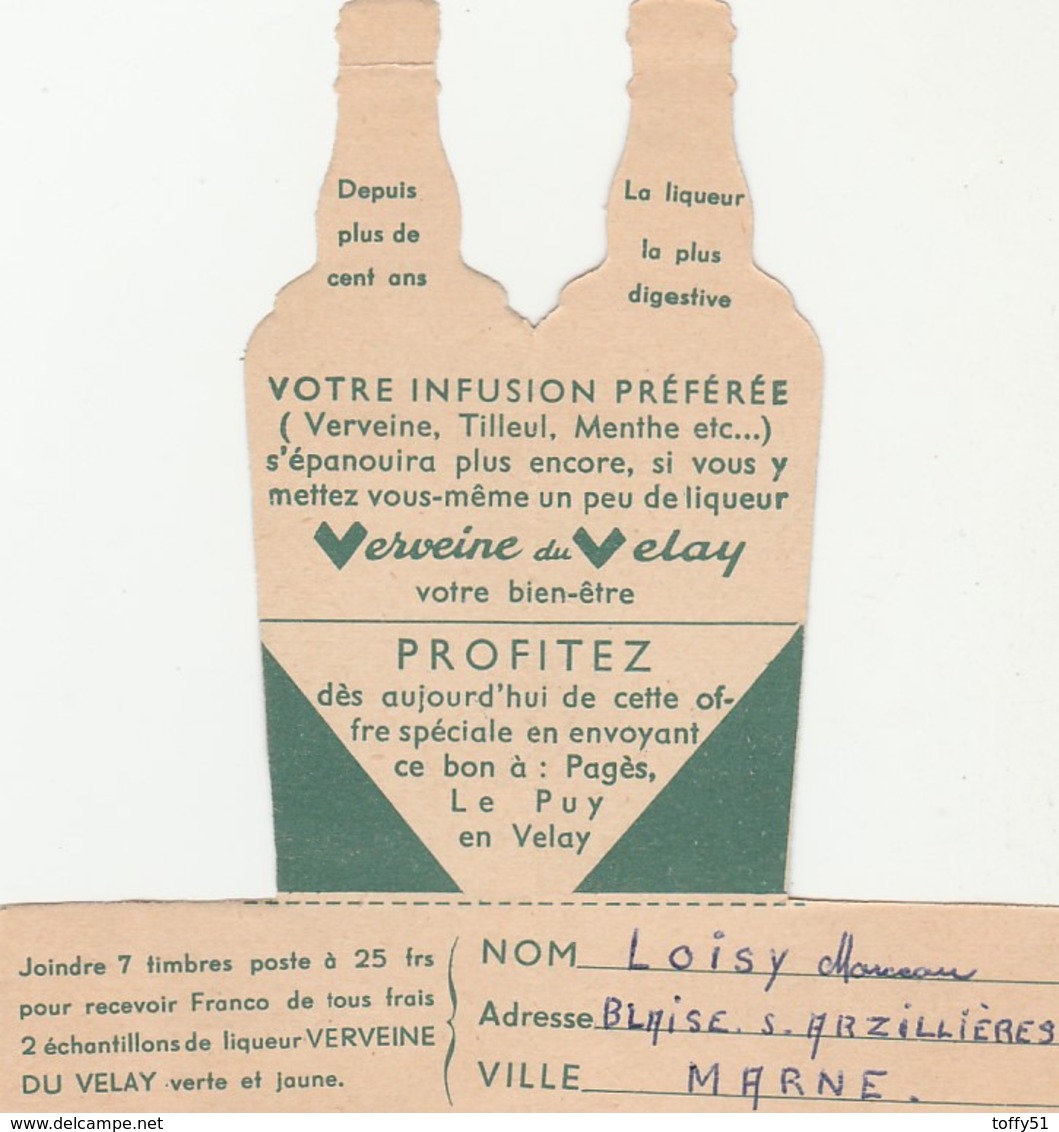 Depuis
plus de
cent ans
La liqueur
la plus
digestive
VOTRE INFUSION PRÉFÉRÉE
( Verveine, Tilleul, Menthe etc...)
s'épanouira plus encore, si vous y
mettez vous-même un peu de liqueur
Verveine du Velay
votre bien-être
PROFITEZ
dès aujourd'hui de cette of-
fre spéciale en envoyant
ce bon à : Pagès,
Le Puy
en Velay
Joindre 7 timbres poste à 25 frs
pour recevoir Franco de tous frais
2 échantillons de liqueur VERVEINE
DU VELAY verte et jaune.
NOM LOISY Marceau
Adresse BLAISE. S. ARZILLIÈRES
VILLE MARNE.
© delcampe.net
toffy51